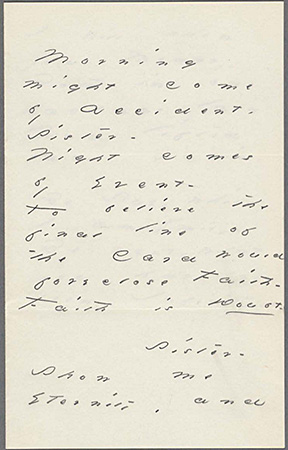 Morning
might come
by Accident -
Sister -
Night comes
by Event -
To believe the
final line of
the Card would
foreclose Faith -
Faith is Doubt.
Sister -
Show me
Eternity, and